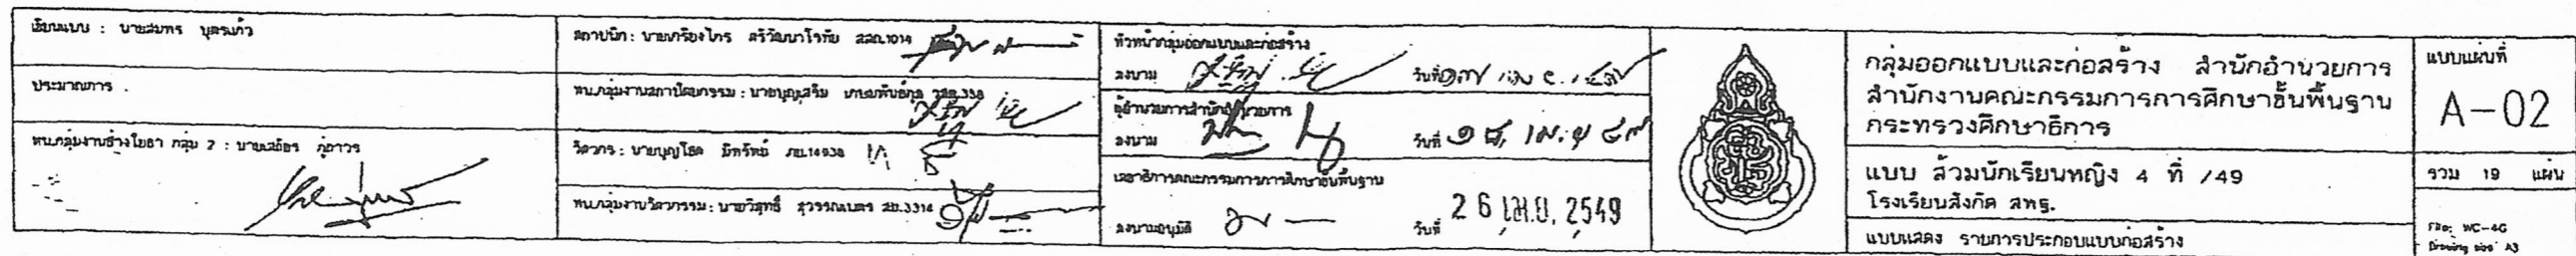 เขียนแบบ : นายสมพร บุตรแก้ว
ประมาณการ .
หน.กลุ่มงานช่างโยธา กลุ่ม 2 : นายเสถียร ภู่ถาวร
สถาปนิก : นายเกรียงไกร ศรีวัฒนาโรทัย สสถ.1014
หน.กลุ่มงานสถาปัตยกรรม : นายบุญเสริม เกษมพันธ์กุล
วิศวกร : นายบุญโชค มีทรัพย์ ภย.14938
หน.กลุ่มงานวิศวกรรม : นายวิสุทธิ์ สุวรรณเนตร สย.3314
หัวหน้ากลุ่มออกแบบและก่อสร้าง
ลงนาม วันที่
ผู้อำนวยการสำนักอำนวยการ
ลงนาม วันที่ ๑๘ เม.ย ๔๙
เลขาธิการคณะกรรมการการศึกษาขั้นพื้นฐาน
ลงนามอนุมัติ วันที่ 26 เม.ย. 2549
กลุ่มออกแบบและก่อสร้าง สำนักอำนวยการ
สำนักงานคณะกรรมการการศึกษาขั้นพื้นฐาน
กระทรวงศึกษาธิการ
แบบ ส้วมนักเรียนหญิง 4 ที่ /49
โรงเรียนสังกัด สพฐ.
แบบแสดง รายการประกอบแบบก่อสร้าง
แบบแผ่นที่
A-02
รวม 19 แผ่น
File: WC-4G
Drawing size A3